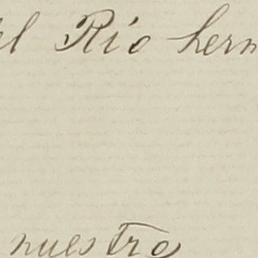 el Río her
nuestro